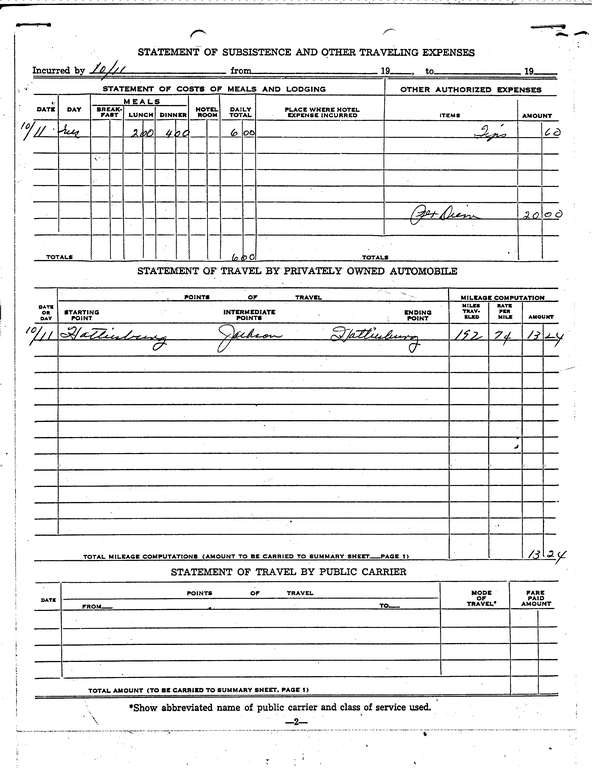 STATEMENT OF SUBSISTENCE AND OTHER TRAVELING EXPENSES
Incurred by 10/11 from 19 , to 19
STATEMENT OF COSTS OF MEALS AND LODGING OTHER AUTHORIZED EXPENSES
DATE DAY MEALS BREAK-FAST LUNCH DINNER HOTEL ROOM DAILY TOTAL PLACE WHERE HOTEL EXPENSE INCURRED ITEMS AMOUNT
10/11 2 00 4 00 6 00 Tips 60
Per Diem 20 00
TOTALS 6 00 TOTALS
STATEMENT OF TRAVEL BY PRIVATELY OWNED AUTOMOBILE
DATE OR DAY POINTS OF TRAVEL MILEAGE COMPUTATION
STARTING POINT INTERMEDIATE POINTS ENDING POINT MILES TRAV-ELED RATE PER MILE AMOUNT
10/11 Hattiesburg Jackson Hattiesburg 192 7¢ 13 24
TOTAL MILEAGE COMPUTATIONS (AMOUNT TO BE CARRIED TO SUMMARY SHEET—PAGE 1) 13 24
STATEMENT OF TRAVEL BY PUBLIC CARRIER
DATE POINTS OF TRAVEL MODE OF TRAVEL* FARE PAID AMOUNT
FROM— TO—
TOTAL AMOUNT (TO BE CARRIED TO SUMMARY SHEET, PAGE 1)
*Show abbreviated name of public carrier and class of service used.
—2—